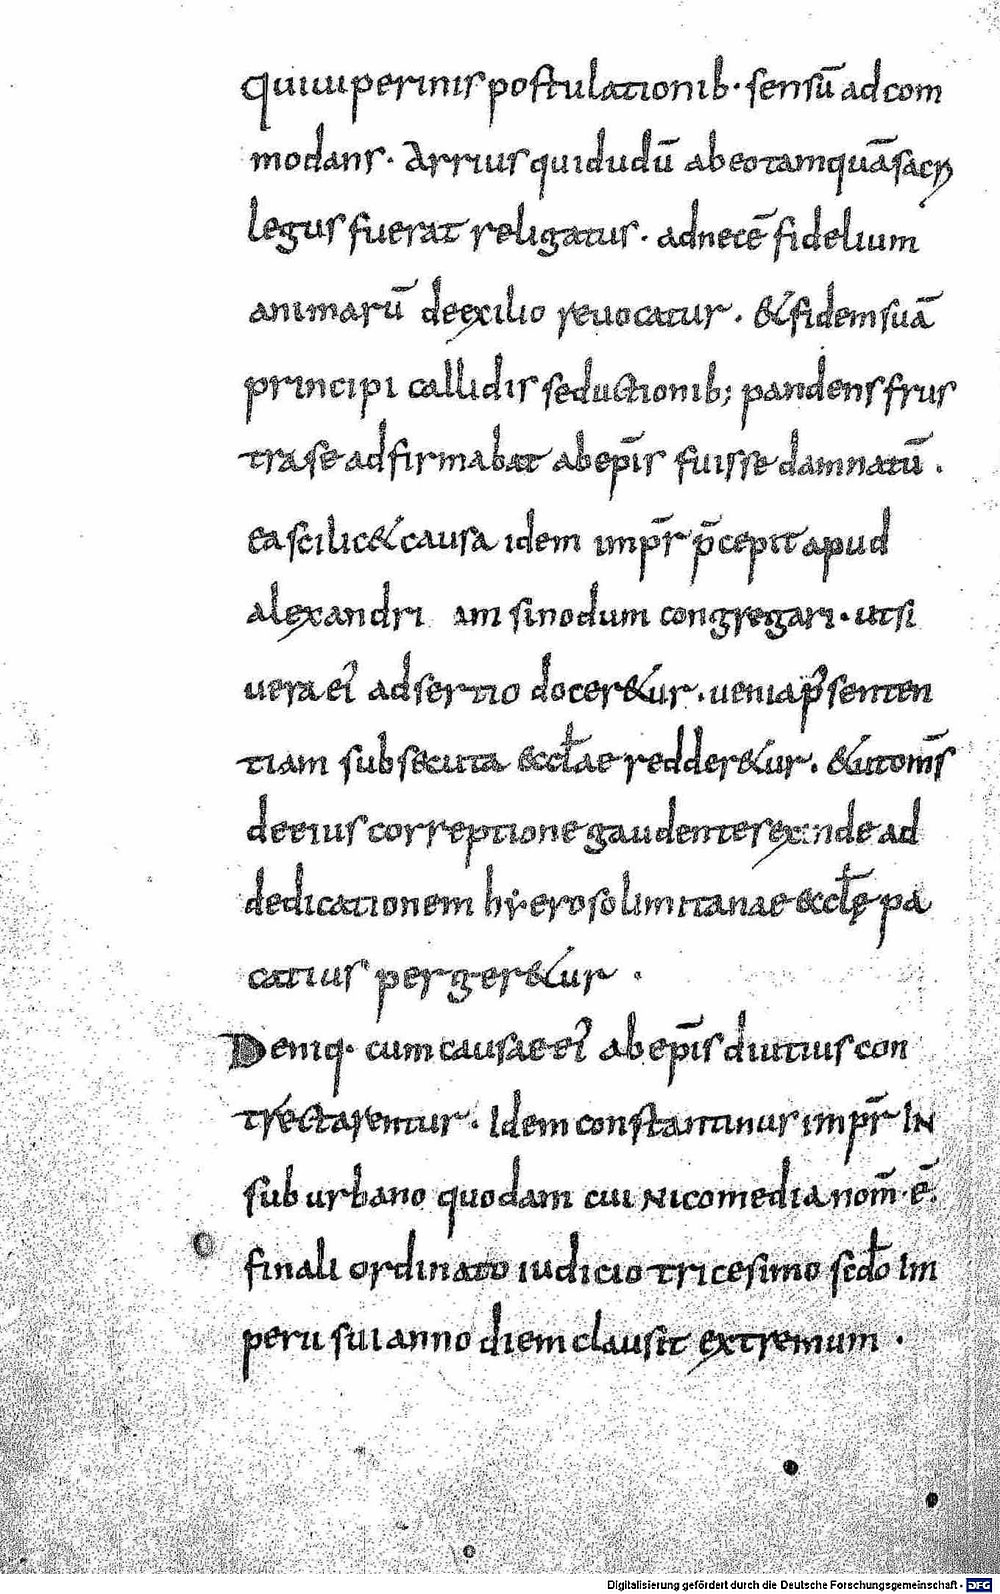 qui uuperinis postulationib· sensū ad com
modans· Arrius qui dudū ab eo tamquā sacri
legus fuerat religatus· ad necē fidelium
animarū de exilio reuocatur· & fidem suā
principi callidis seductionib; pandens frus
tra se adfirmabat ab ep̄is fuisse damnatū·
ea scilic& causa idem imp̄r p̄cepit apud
alexandri am sinodum congregari· ut si
uera ei' adsertio docer&ur· uenia p̄ senten
tiam subsecuta eccłae redder&ur· & ut om̄s
de eius correptione gaudentes exinde ad
dedicationem hẏerosolimitanae eccłę pa
catius perger&ur·
Deniq· cum causae ei' ab ep̄is diutius con
trectarentur· Idem constantinus imp̄r IN
suburbano quodam cui Nicomedia nom̄·ē·
finali ordinato iudicio tricesimo scdo Im
perii sui anno diem clausit extremum·
Digitalisierung gefördert durch die Deutsche Forschungsgemeinschaft - DFG